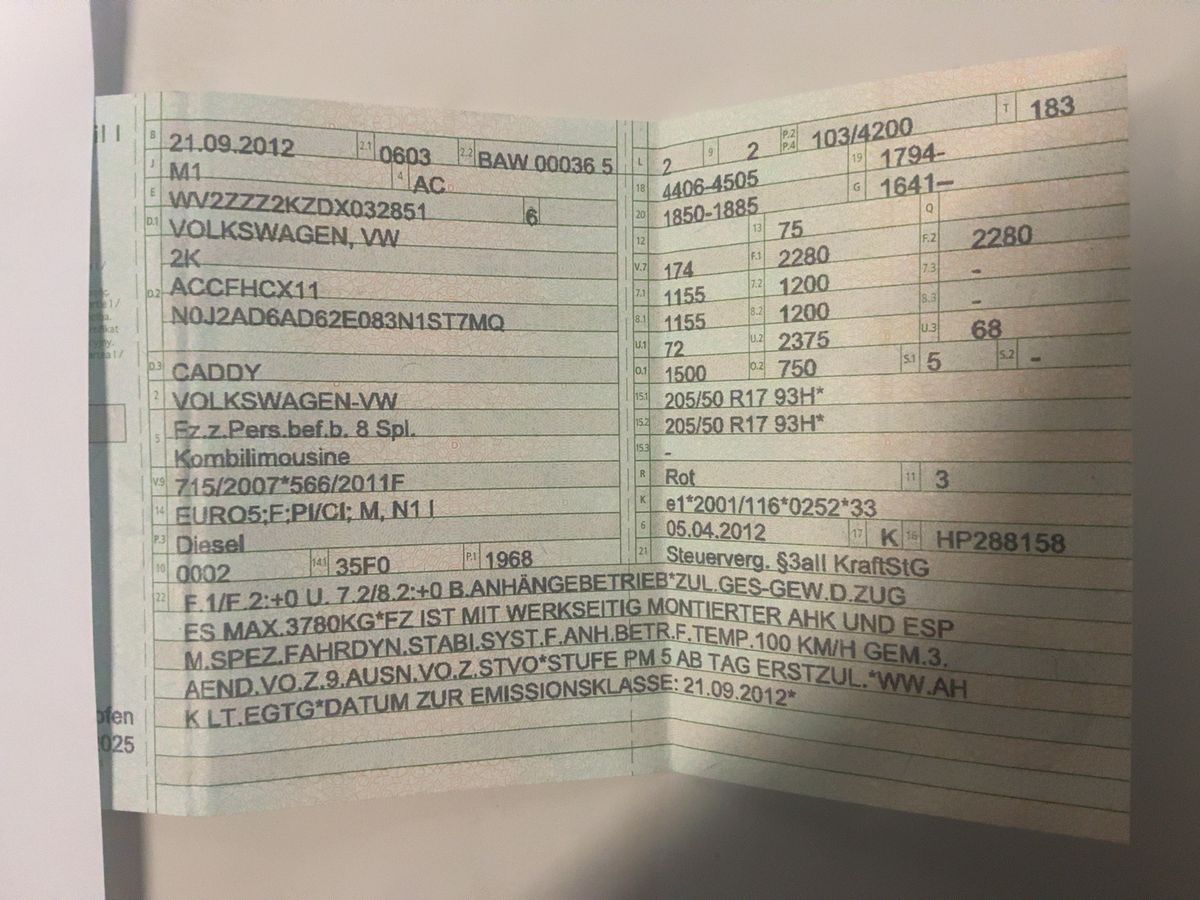 B 21.09.2012 2.1 0603 2.2 BAW 00036 5
J M1 4 AC
E WV2ZZZ2KZDX032851 6
D.1 VOLKSWAGEN, VW
2K
D.2 ACCFHCX11
N0J2AD6AD62E083N1ST7MQ
D.3 CADDY
2 VOLKSWAGEN-VW
5 Fz.z.Pers.bef.b. 8 Spl.
Kombilimousine
V.9 715/2007*566/2011F
14 EURO5;F;PI/CI; M, N1 I
P.3 Diesel
10 0002 14.1 35F0 P.1 1968
L 2 9 2 P.2 P.4 103/4200 T 183
18 4406-4505 19 1794-
20 1850-1885 G 1641-
12 13 75 Q
V.7 174 F.1 2280 F.2 2280
7.1 1155 7.2 1200 7.3 -
8.1 1155 8.2 1200 8.3 -
U.1 72 U.2 2375 U.3 68
O.1 1500 O.2 750 S.1 5 S.2 -
15.1 205/50 R17 93H*
15.2 205/50 R17 93H*
15.3 -
R Rot 11 3
K e1*2001/116*0252*33
6 05.04.2012 17 K 16 HP288158
21 Steuerverg. §3all KraftStG
22 F.1/F.2:+0 U. 7.2/8.2:+0 B.ANHÄNGEBETRIEB*ZUL.GES-GEW.D.ZUG
ES MAX.3780KG*FZ IST MIT WERKSEITIG MONTIERTER AHK UND ESP
M.SPEZ.FAHRDYN.STABI.SYST.F.ANH.BETR.F.TEMP.100 KM/H GEM.3.
AEND.VO.Z.9.AUSN.VO.Z.STVO*STUFE PM 5 AB TAG ERSTZUL.*WW.AH
K LT.EGTG*DATUM ZUR EMISSIONSKLASSE: 21.09.2012*
ofen
025